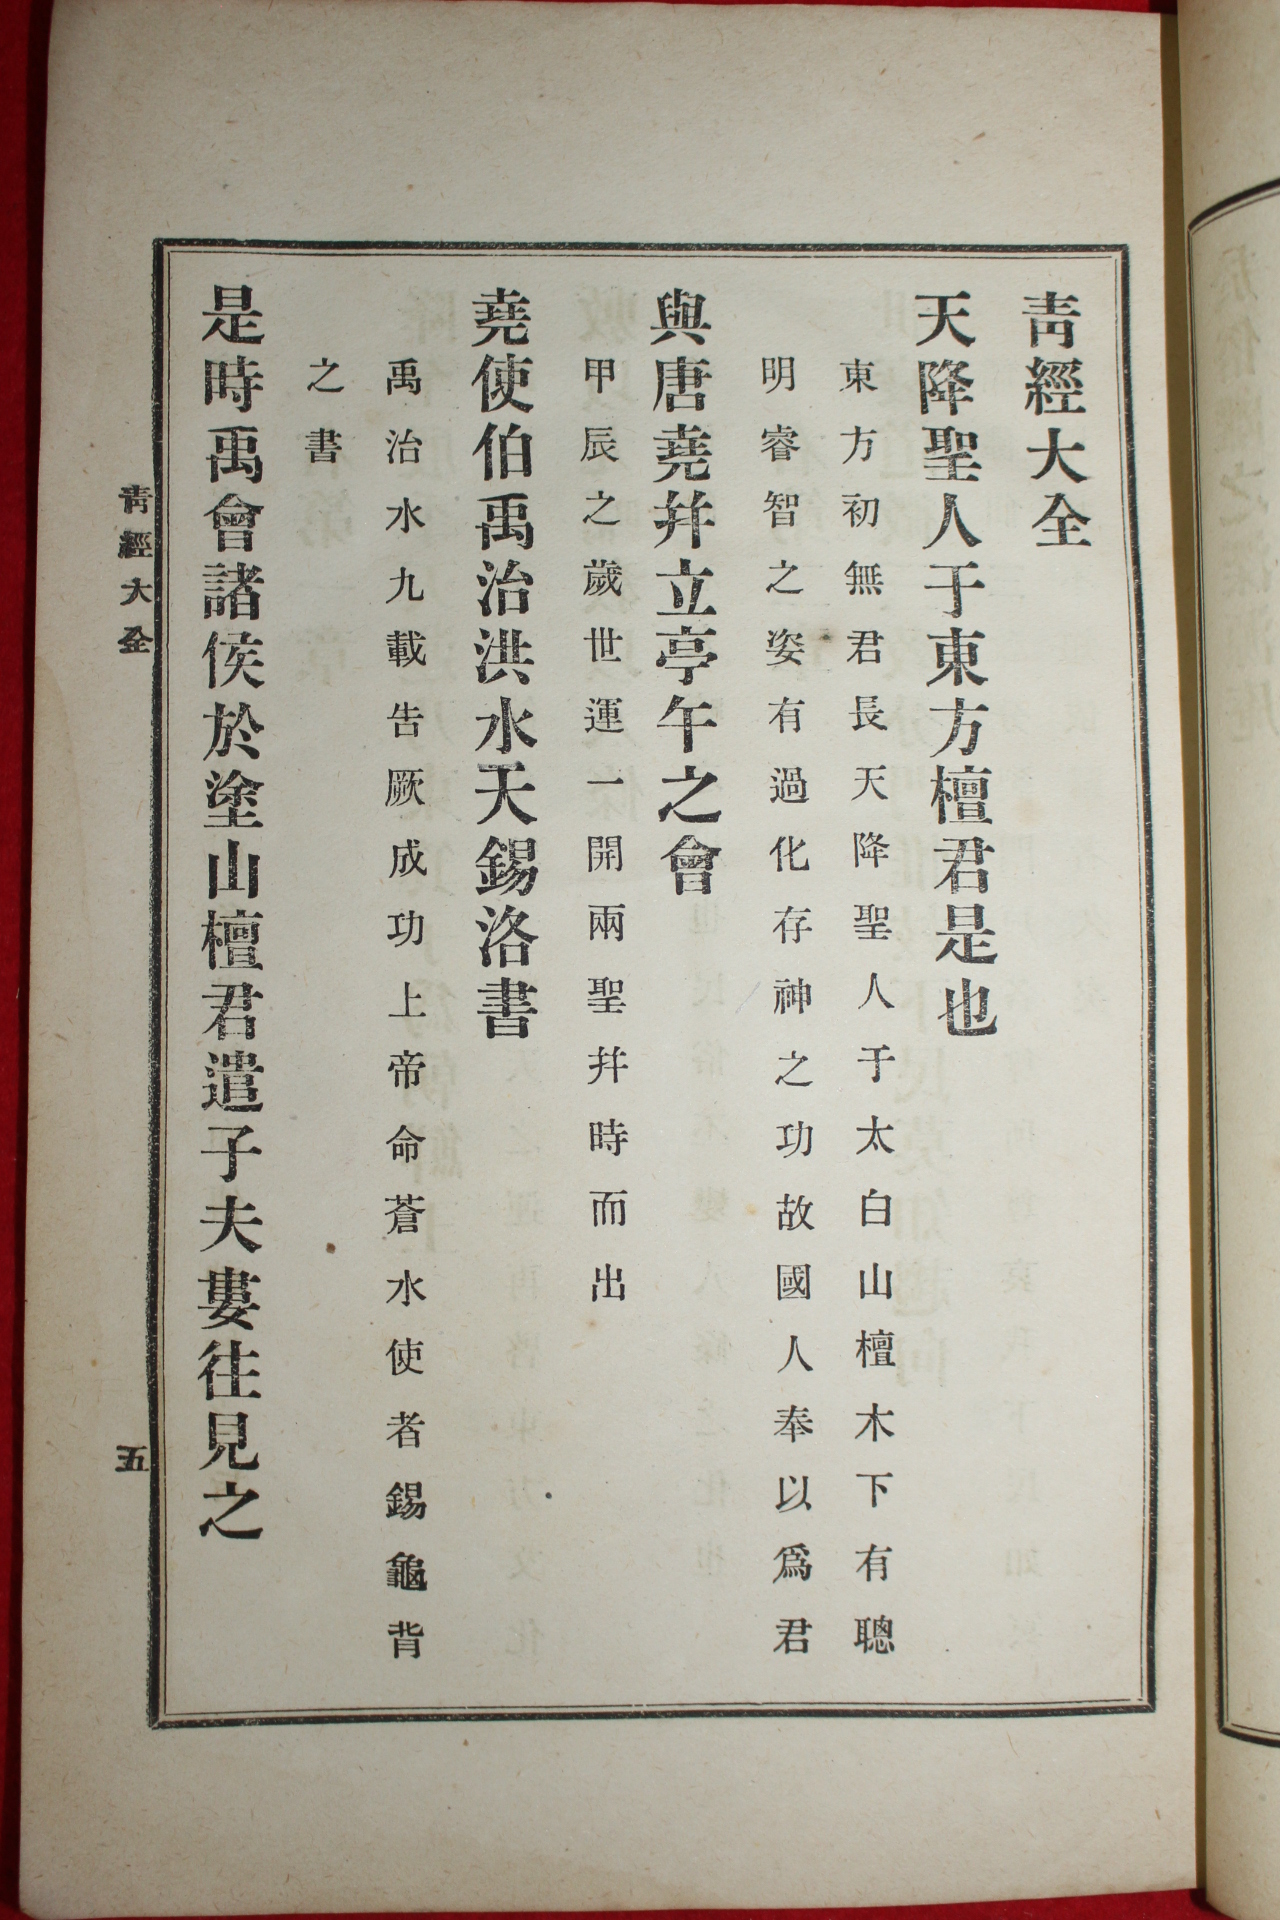 靑經大全
天降聖人于東方檀君是也
東方初無君長天降聖人于太白山檀木下有聰
明睿智之姿有過化存神之功故國人奉以爲君
與唐堯幷立亭午之會
甲辰之歲世運一開兩聖幷時而出
堯使伯禹治洪水天錫洛書
禹治水九載告厥成功上帝命蒼水使者錫龜背
之書
是時禹會諸侯於塗山檀君遣子夫婁往見之
靑經大全
五